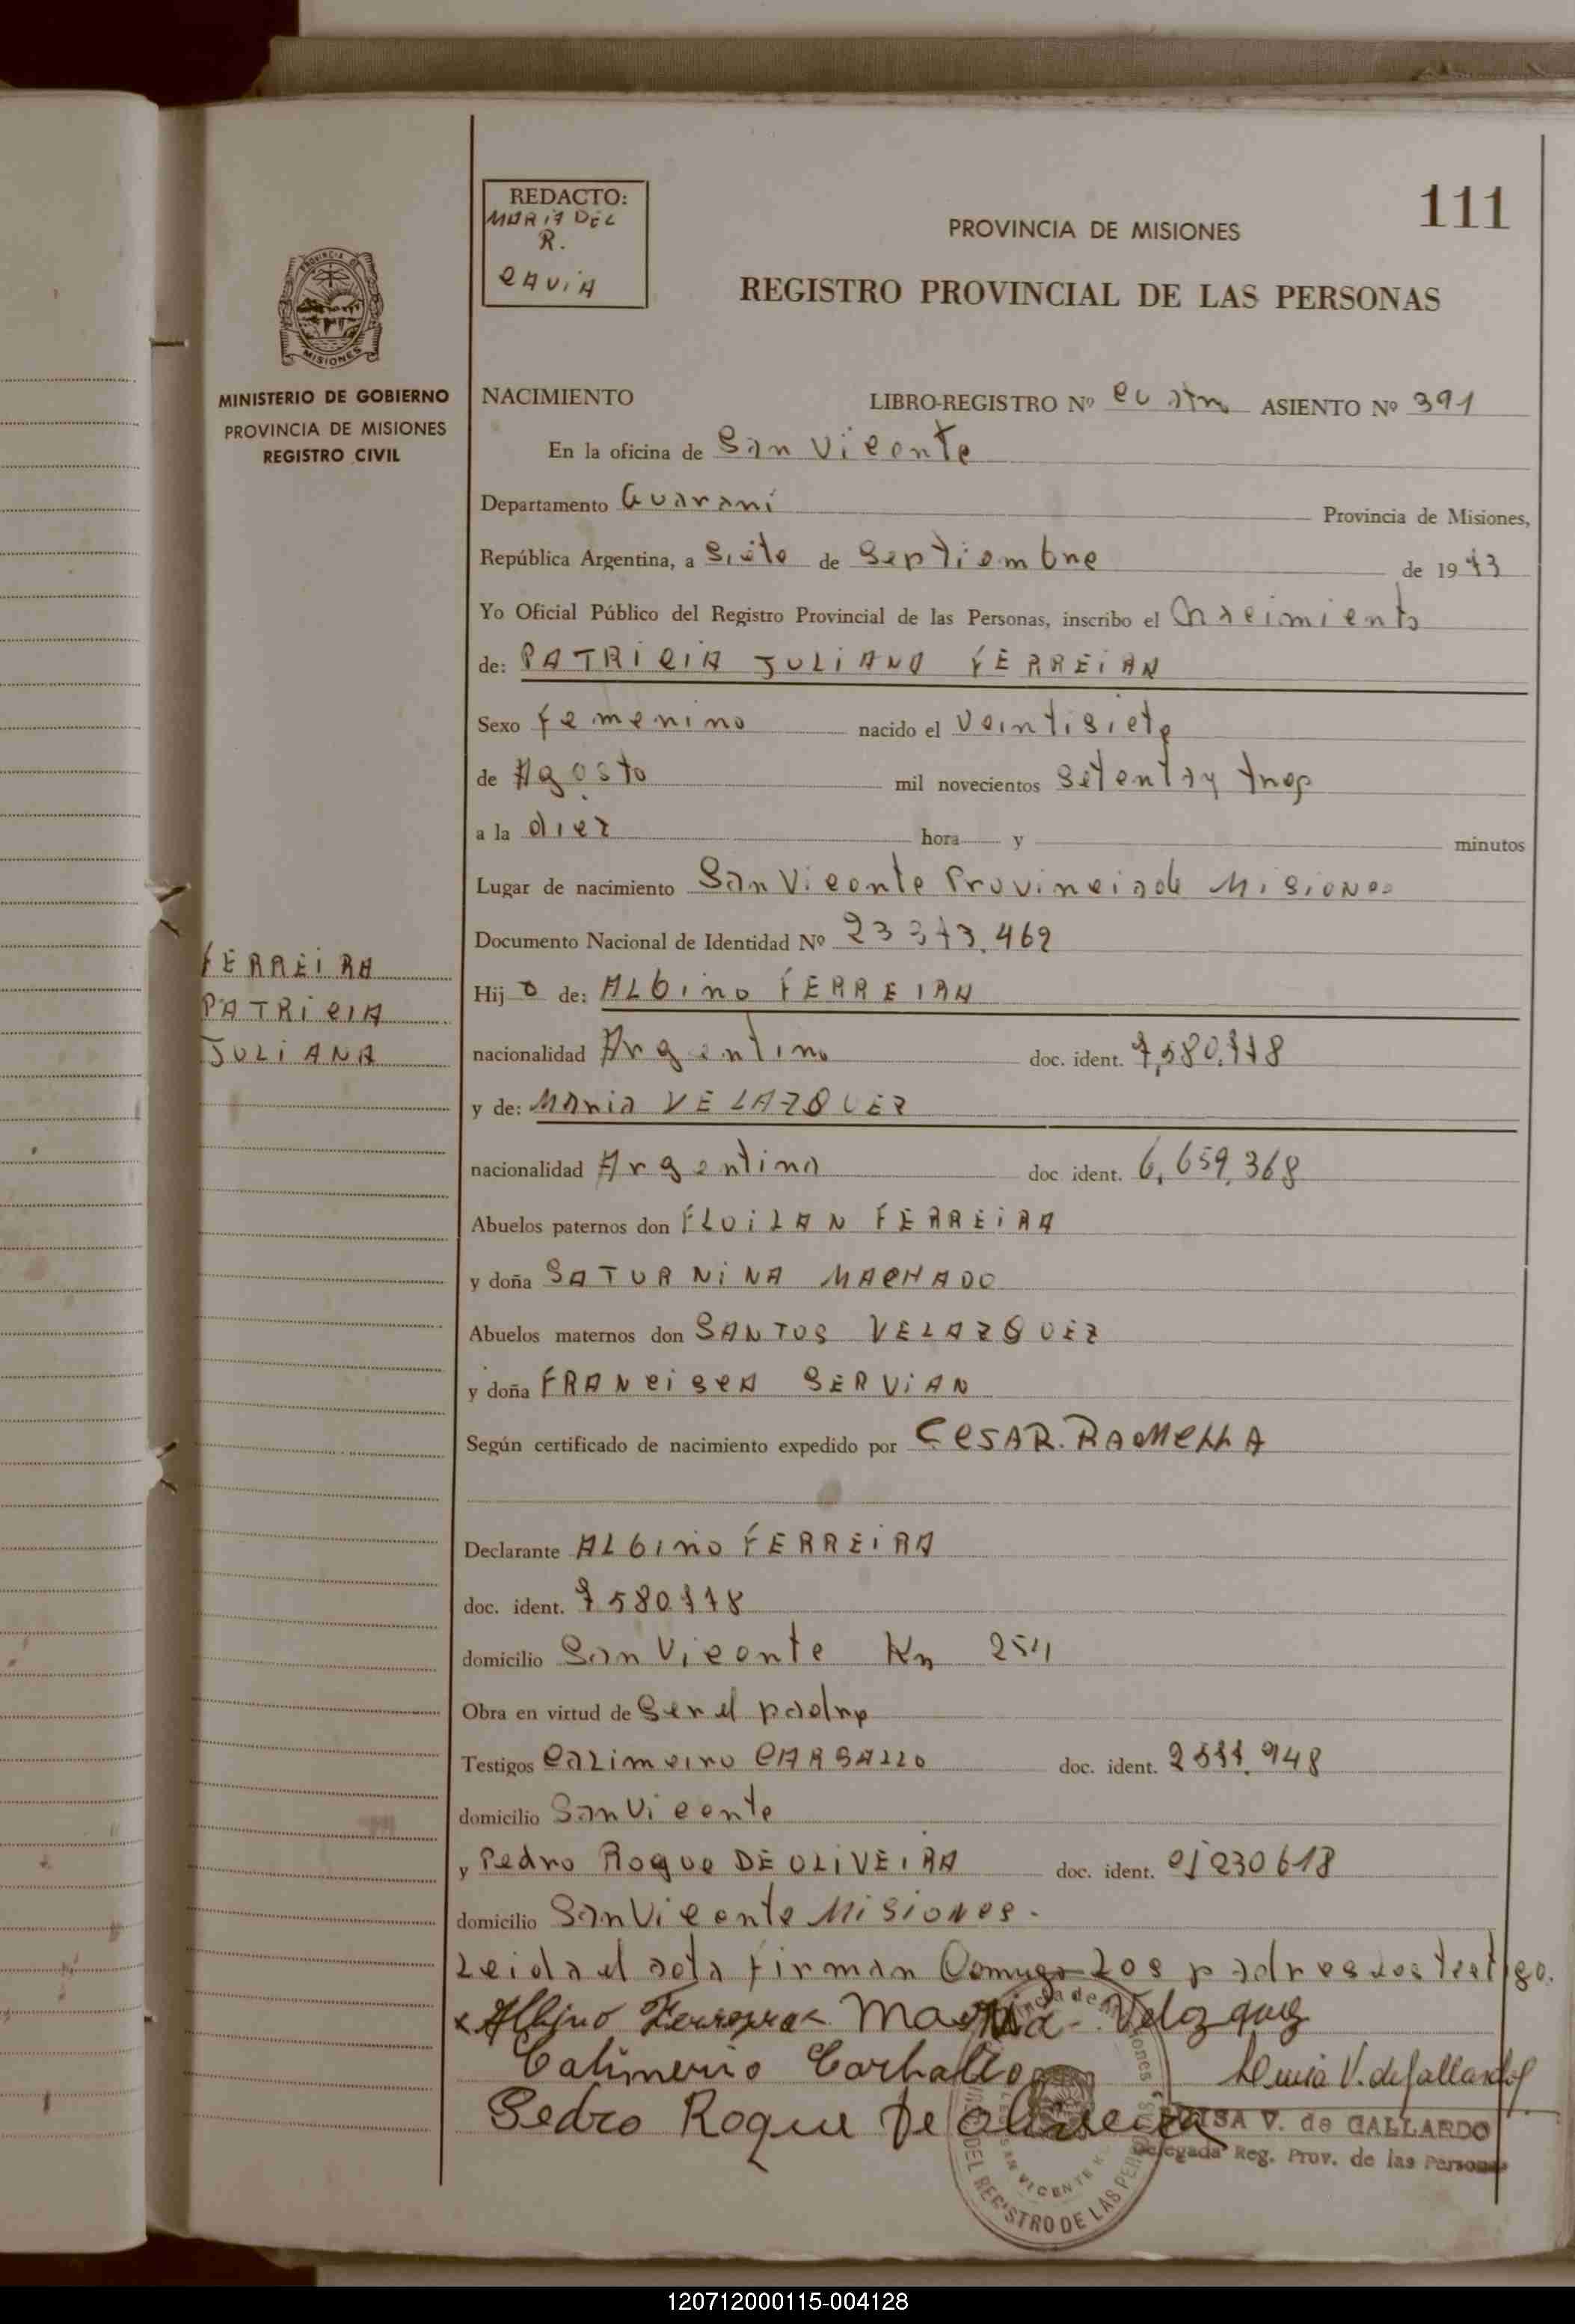 111
REDACTO:
MARIA DEL
R.
CAVIA
PROVINCIA DE MISIONES
REGISTRO PROVINCIAL DE LAS PERSONAS
PROVINCIA DE
MISIONES
MINISTERIO DE GOBIERNO
PROVINCIA DE MISIONES
REGISTRO CIVIL
NACIMIENTO LIBRO-REGISTRO Nº cuatro ASIENTO Nº 391
En la oficina de San Vicente
Departamento Guarani Provincia de Misiones,
República Argentina, a Siete de Septiembre de 1973
Yo Oficial Público del Registro Provincial de las Personas, inscribo el Nacimiento
de: PATRICIA JULIANA FERREIRA
Sexo femenino nacido el Veintisiete
de Agosto mil novecientos Setenta y tres
a la diez hora y minutos
Lugar de nacimiento San Vicente Provincia de Misiones
Documento Nacional de Identidad Nº 23 373.469
FERREIRA
PATRICIA
JULIANA
Hij a de: ALbino FERREIRA
nacionalidad Argentino doc. ident. 7,580.778
y de: Maria VELAZQUEZ
nacionalidad Argentina doc ident. 6,659,368
Abuelos paternos don FLOILAN FERREIRA
y doña SATURNINA MACHADO
Abuelos maternos don SANTOS VELAZQUEZ
y doña FRANCISCA SERVIAN
Según certificado de nacimiento expedido por CESAR. RAMELLA
Declarante ALbino FERREIRA
doc. ident. 7580778
domicilio San Vicente Km 254
Obra en virtud de Ser el padre
Testigos Calimerio CARBALLO doc. ident. 2577.948
domicilio San Vicente
y Pedro Roque DE OLIVEIRA doc. ident. CI 230618
domicilio San Vicente Misiones.
Leida el acta firman Conmigo Los padres Los testigo.
x Albino Ferreyra Maria Velazquez
Calimerio Carballo Luisa V. de Gallardo
Pedro Roque De Oliveira
V. de GALLARDO
Delegada Reg. Prov. de las Personas
SAN VICENTE
DEL REGISTRO DE LAS PERSONAS
120712000115-004128